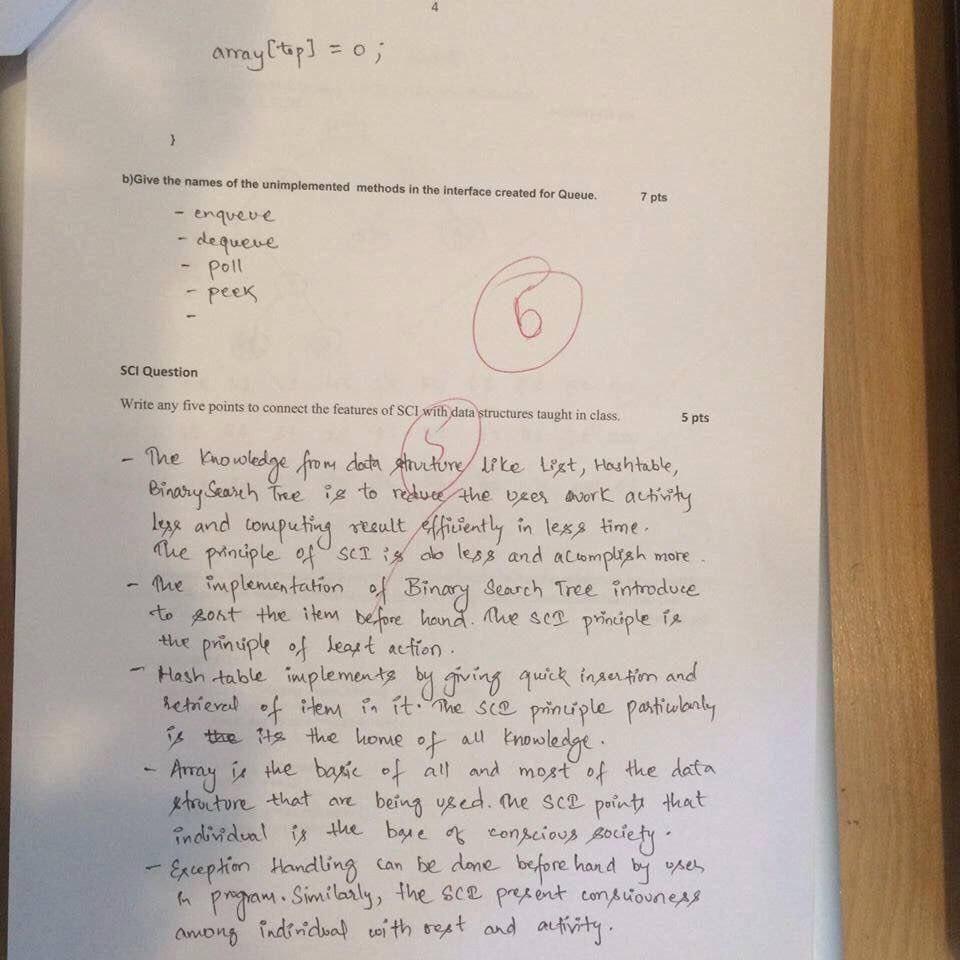 4
array[top] = 0 ;
}
b)Give the names of the unimplemented methods in the interface created for Queue. 7 pts
- enqueue
- dequeue
- poll
- peek
-
6
SCI Question
Write any five points to connect the features of SCI with data structures taught in class. 5 pts
5
- The Knowledge from data structure like List, Hashtable,
Binary Search Tree is to reduce the user work activity
less and computing result efficiently in less time.
The principle of SCI is do less and acomplish more.
- The implementation of Binary Search Tree introduce
to sort the item before hand. The SCI principle is
the principle of least action.
- Hash table implements by giving quick insertion and
retrieval of item in it. The SCI principle particularly
is the its the home of all knowledge.
- Array is the basic of all and most of the data
structure that are being used. The SCI points that
individual is the base of conscious society.
- Exception Handling can be done before hand by user
in program. Similarly, the SCI present consciouness
among individual with rest and activity.